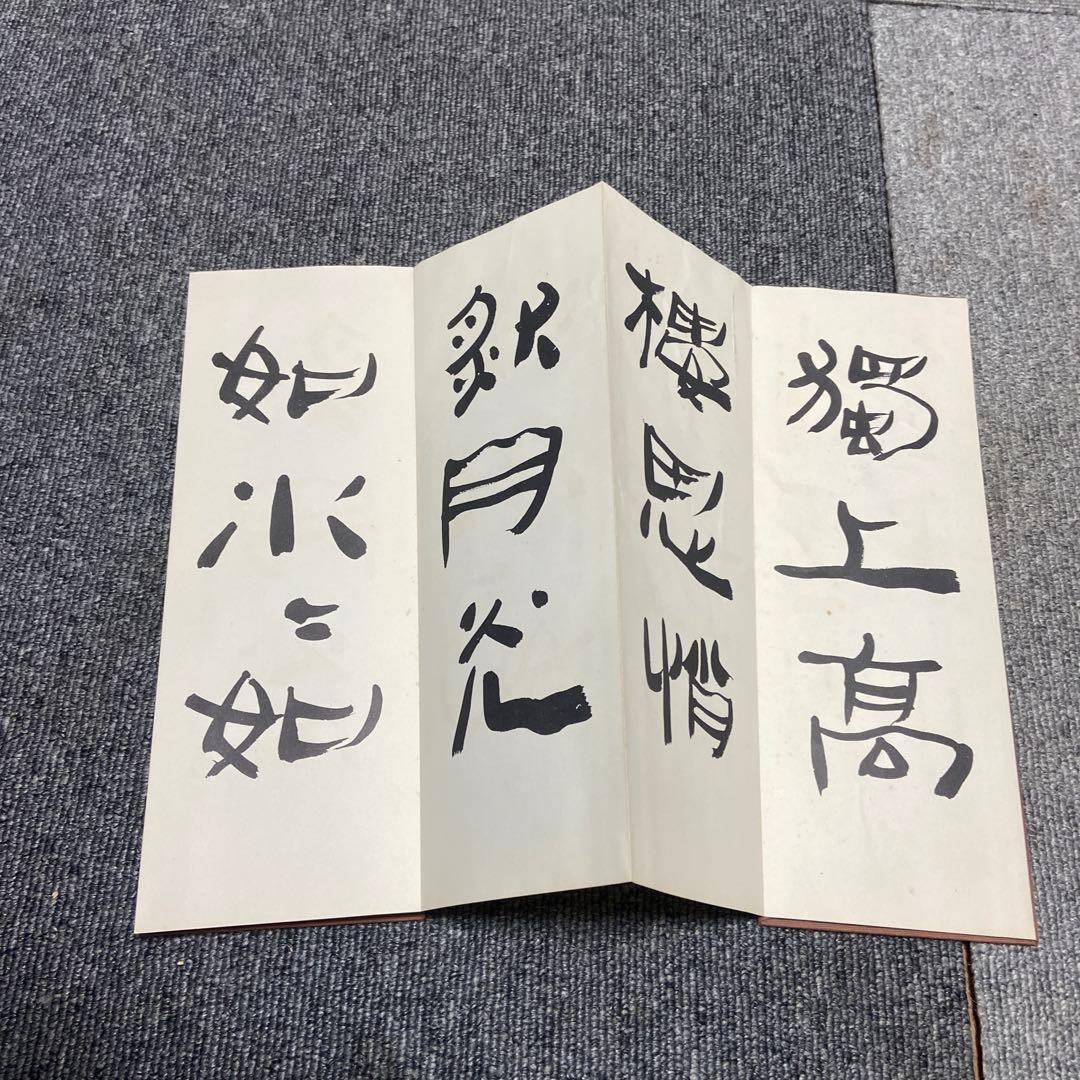 獨上高
樓思悄
然月光
如水〻如